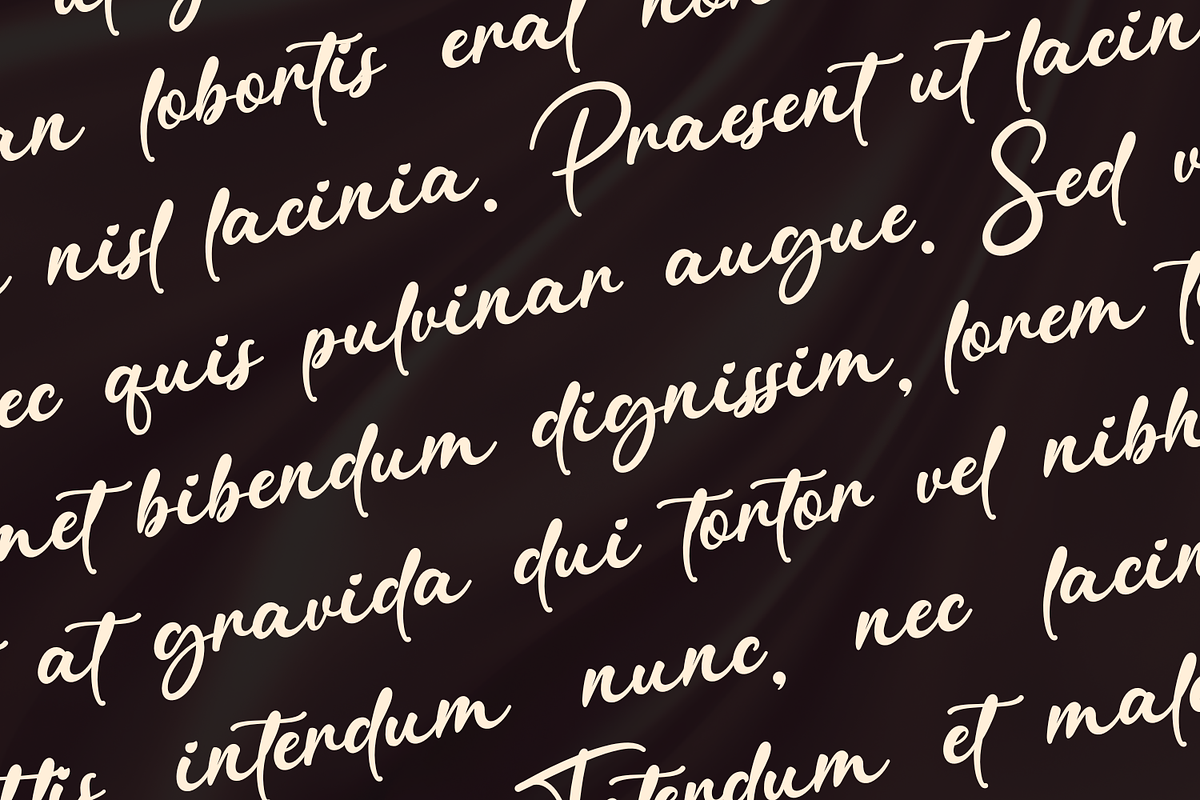 an lobortis erat non
nisl lacinia. Praesent ut lacin
ec quis pulvinar augue. Sed v
met bibendum dignissim, lorem t
at gravida dui tortor vel nibh
ttis interdum nunc, nec lacin
Interdum et male